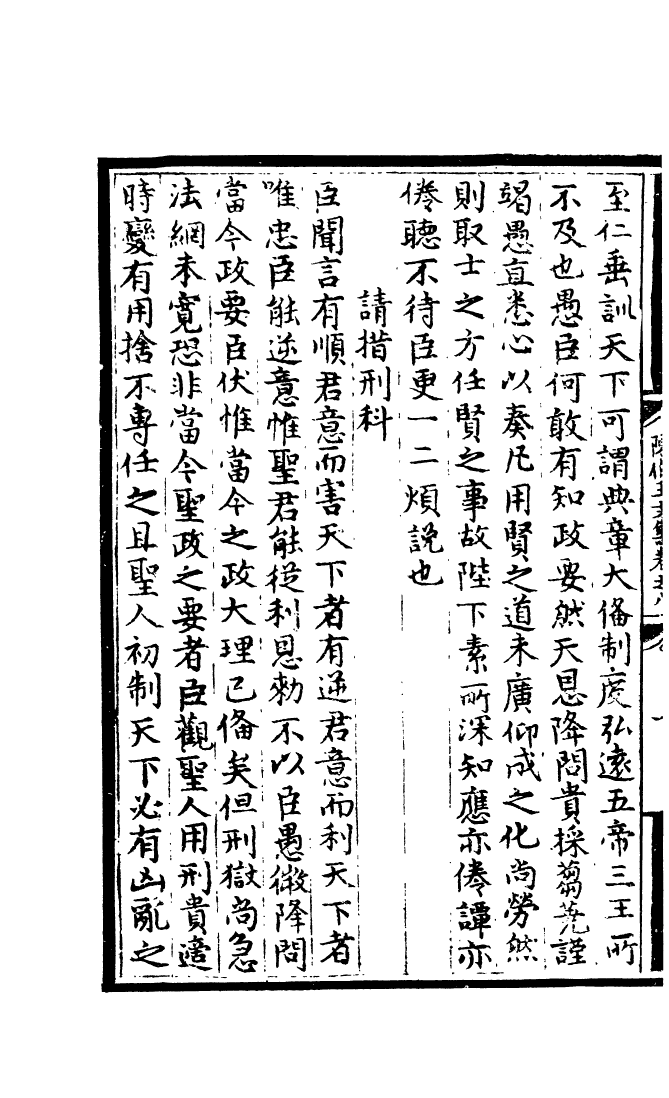 至仁垂訓天下可謂典章大備制度弘遠五帝三王所
不及也愚臣何敢有知政要然天恩降問貴採蒭蕘謹
竭愚直悉心以奏凡用賢之道未廣仰成之化尚勞然
則取士之方任賢之事故陛下素所深知應亦倦譚亦
倦聽不待臣更一二煩說也
請措刑科
臣聞言有順君意而害天下者有逆君意而利天下者
唯忠臣能逆意惟聖君能從利恩勑不以臣愚微降問
當今政要臣伏惟當今之政大理已備矣但刑獄尚急
法網未寬恐非當今聖政之要者臣觀聖人用刑貴適
時變有用捨不專任之且聖人初制天下必有凶亂之